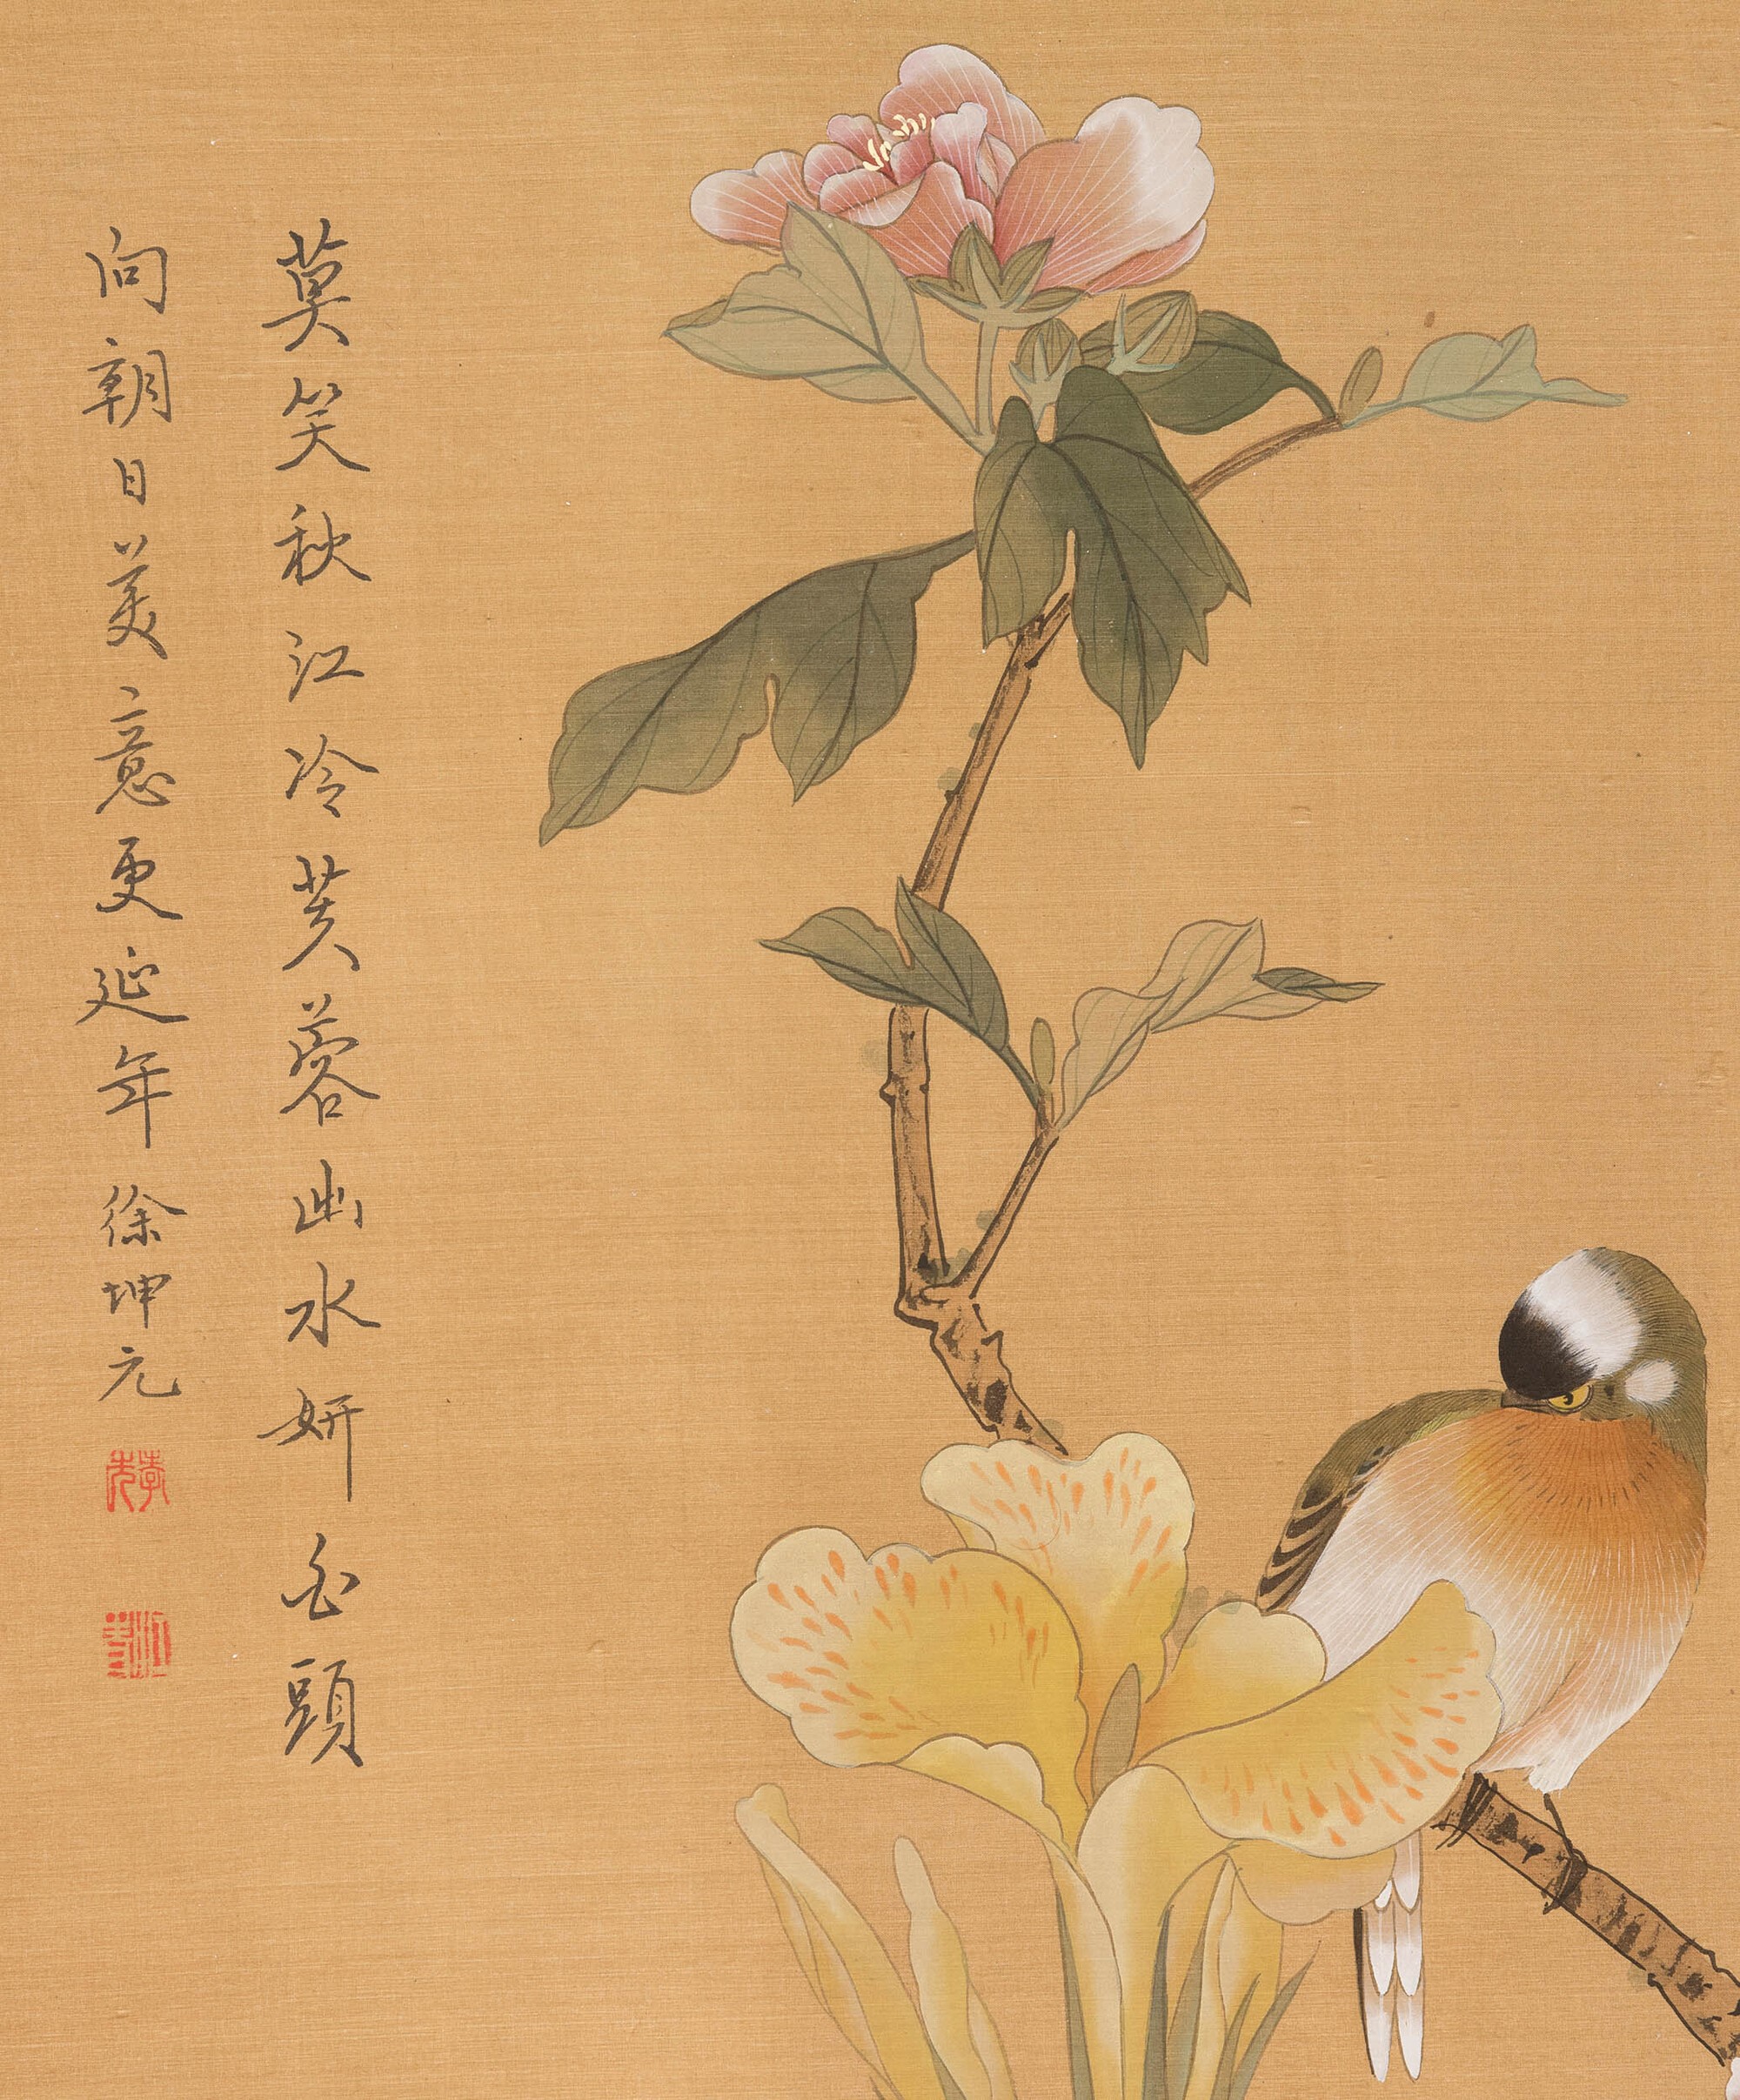 莫笑秋江冷芙蓉幽水妍白頭
向朝日美意更延年徐坤元